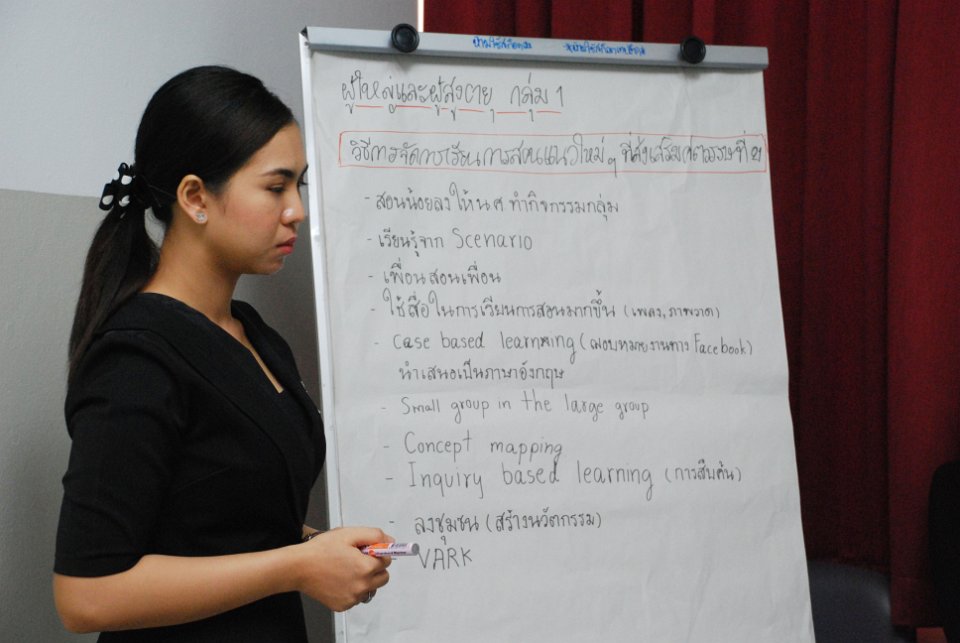 ผู้ใหญ่และผู้สูงอายุ กลุ่ม 1
วิธีการจัดการเรียนการสอนแนวใหม่ ๆ ที่ส่งเสริมศตวรรษที่ 21
- สอนน้อยลง ให้ นศ ทำกิจกรรมกลุ่ม
- เรียนรู้จาก Scenario
- เพื่อนสอนเพื่อน
- ใช้สื่อในการเรียนการสอนมากขึ้น (เพลง, ภาพวาด)
- case based learning (มอบหมายงานทาง Facebook)
นำเสนอเป็นภาษาอังกฤษ
- Small group in the large group
- Concept mapping
- Inquiry based learning (การสืบค้น)
- ลงชุมชน (สร้างนวัตกรรม)
VARK